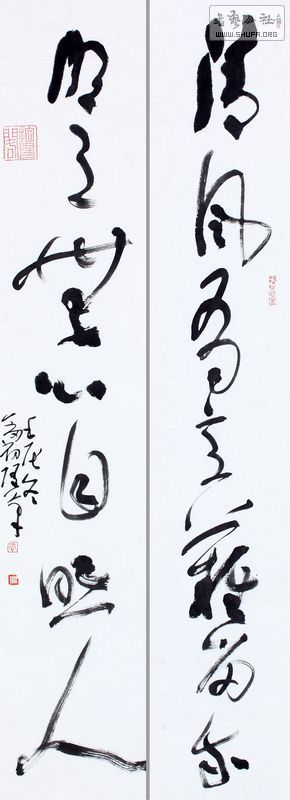 書藝公社
WWW.SHUFA.ORG
清風有意難留我
明月無心自照人
壬辰冬